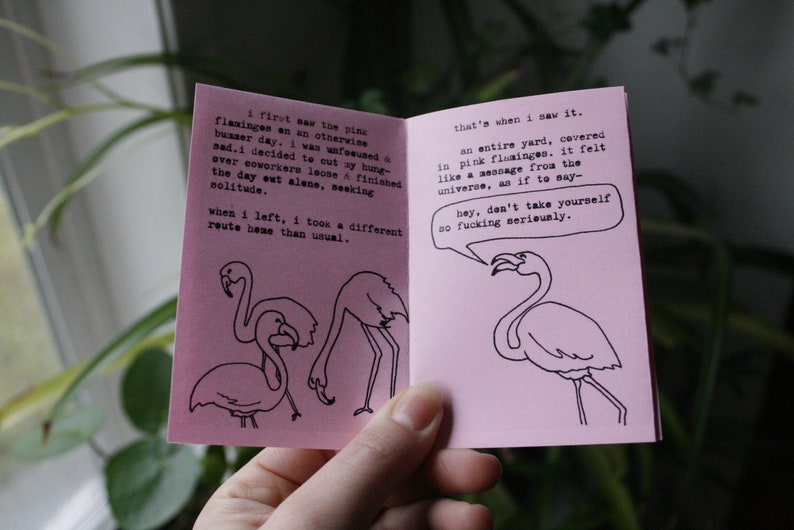 i first saw the pink
flamingos on an otherwise
bummer day. i was unfocused &
sad.i decided to cut my hung-
over coworkers loose & finished
the day out alone, seeking
solitude.
when i left, i took a different
route home than usual.
that's when i saw it.
an entire yard, covered
in pink flamingos. it felt
like a message from the
universe, as if to say-
hey, don't take yourself
so fucking seriously.